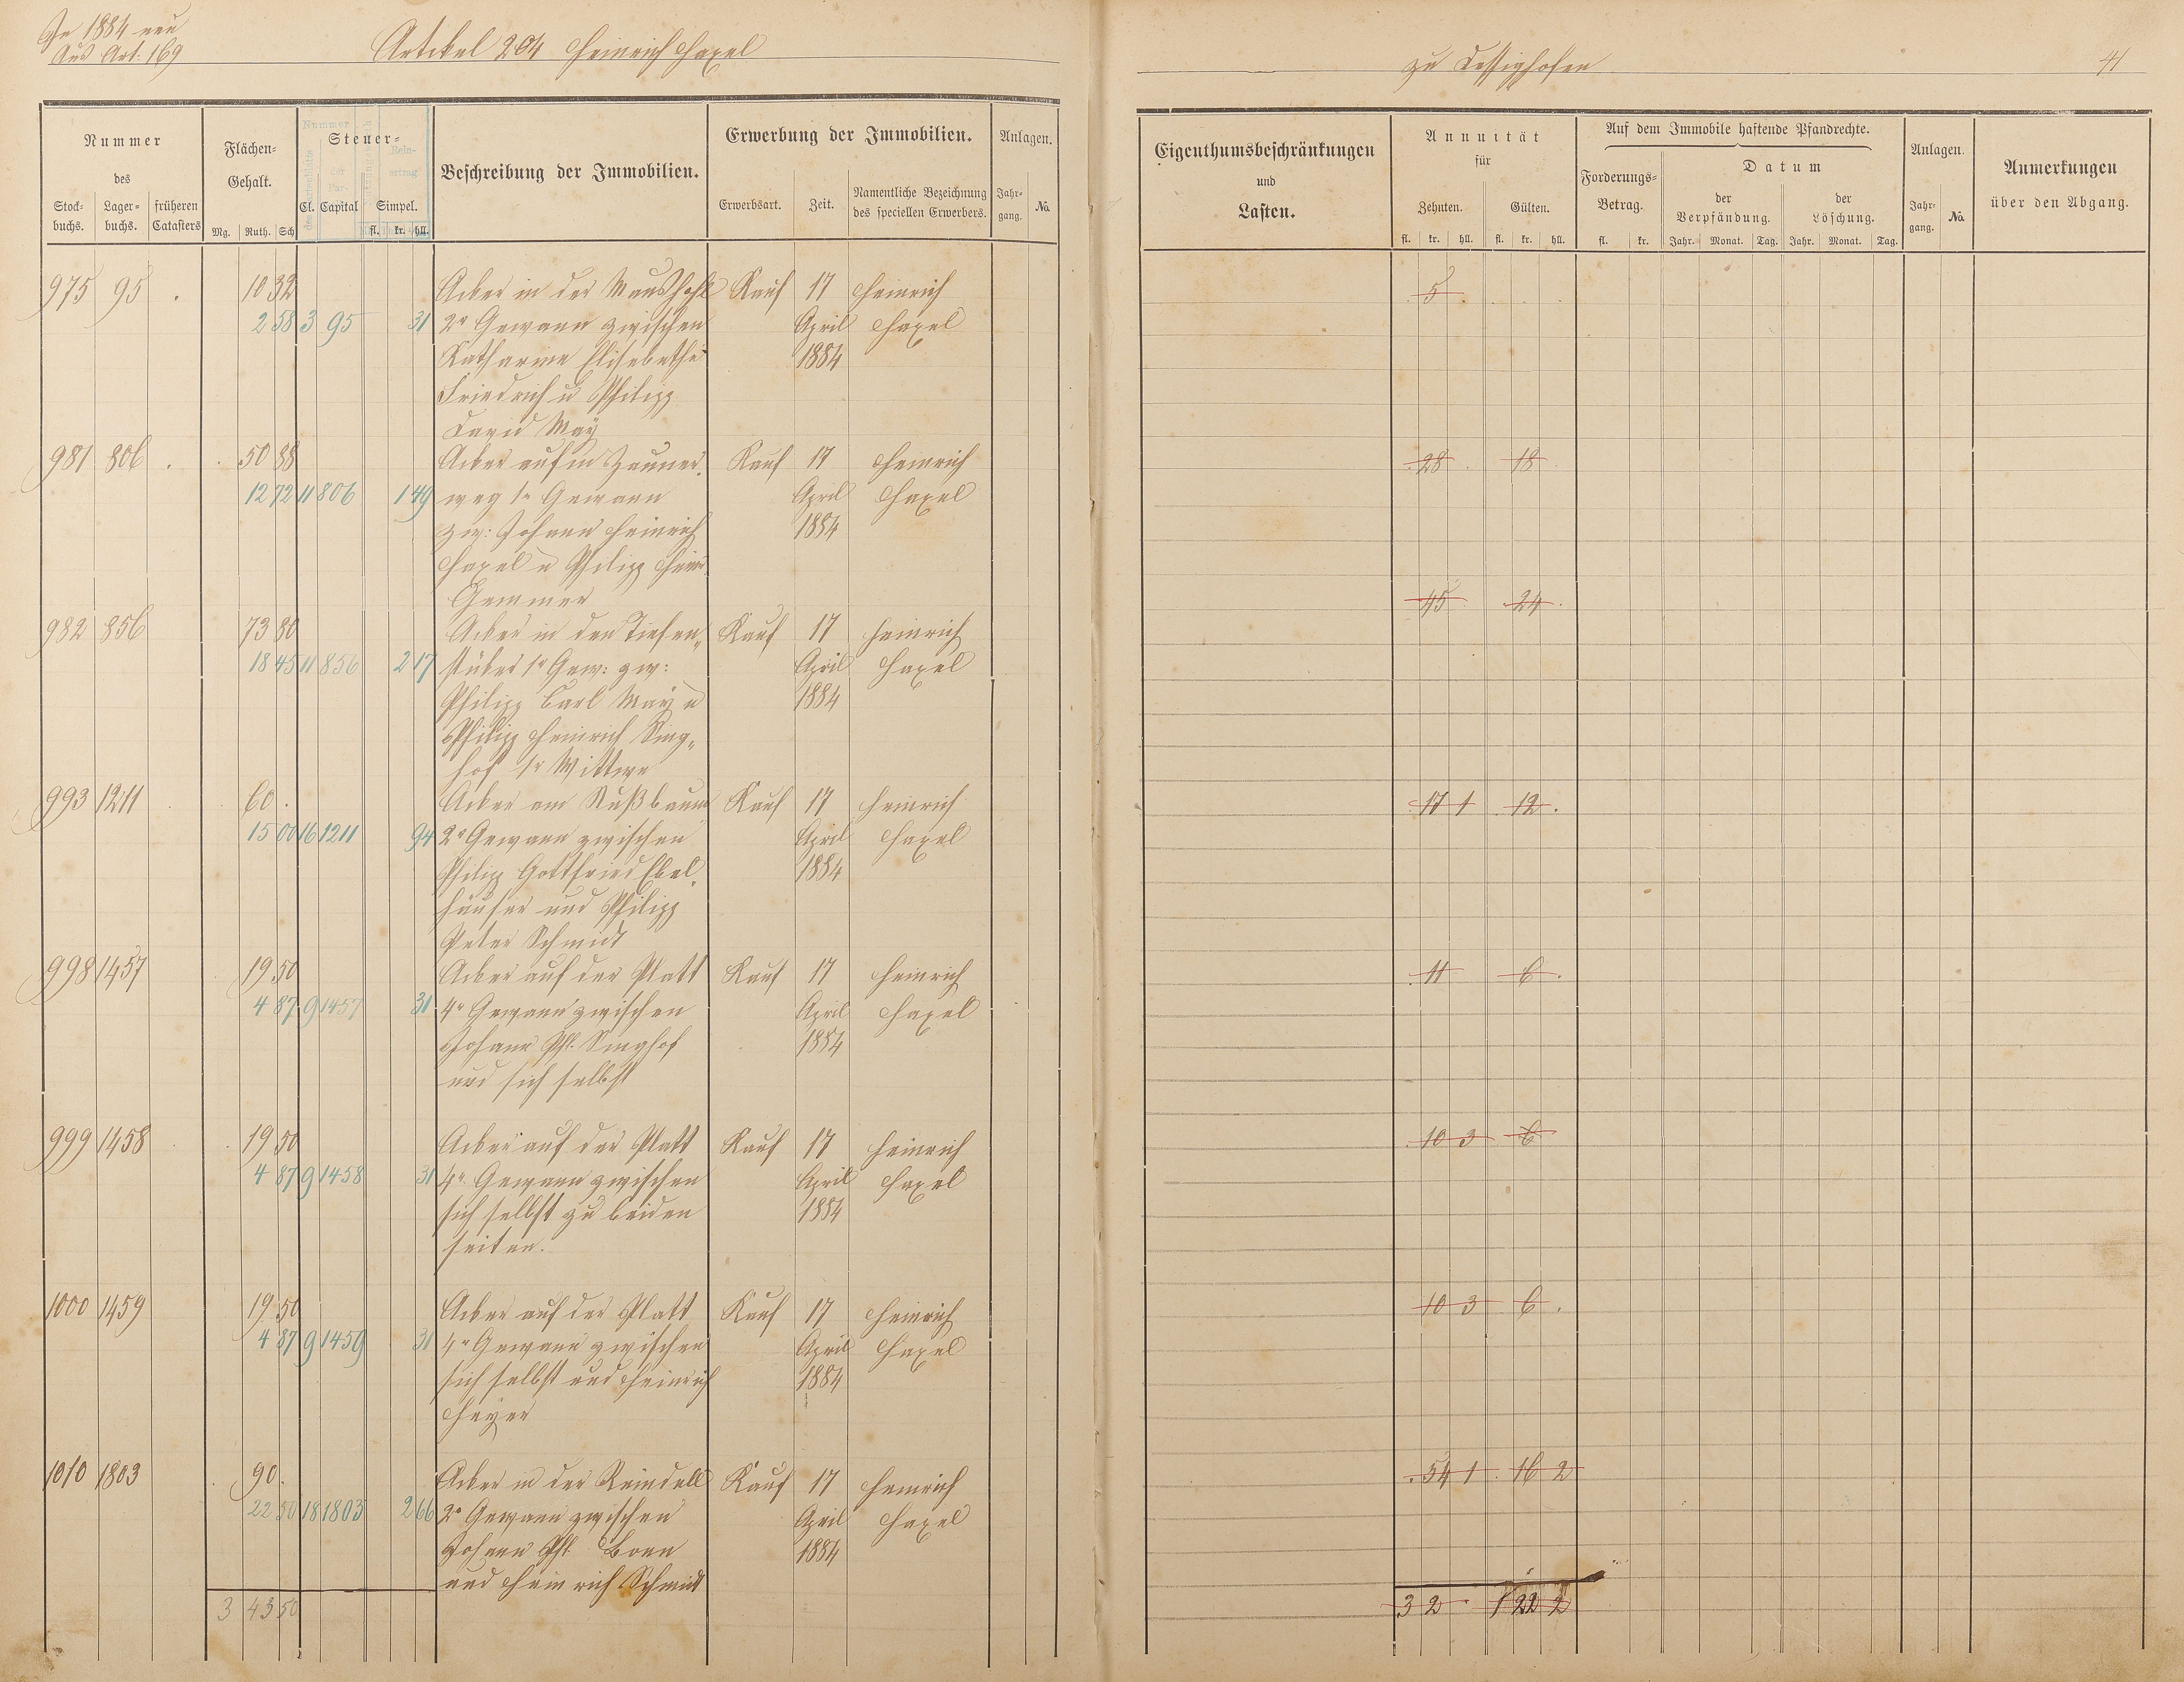 In 1884 neu
Aus Art. 169
Artikel 204 Heinrich Haxel
zu Dessighofen
41
Nummer
des
Stock-
buchs.
Lager-
buchs.
früheren
Catasters
Flächen-
Gehalt.
Mg. Ruth. Sch
Steuer-
Cl. Capital Simpel.
fl. kr. hll.
Beschreibung der Immobilien.
Erwerbung der Immobilien.
Erwerbsart. Zeit.
Namentliche Bezeichnung
des speciellen Erwerbers.
Anlagen.
Jahr-
gang.
No.
Eigenthumsbeschränkungen
und
Lasten.
Annuität
für
Zehnten. Gülten.
fl. kr. hll. fl. kr. hll.
Auf dem Immobile haftende Pfandrechte.
Forderungs-
Betrag.
fl. kr.
Datum
der
Verpfändung.
der
Löschung.
Jahr. Monat. Tag. Jahr. Monat. Tag.
Anlagen.
Jahr-
gang.
No.
Anmerkungen
über den Abgang.
975 95 . 10 32 Acker in der Maushohl Kauf 17 Heinrich 5
2 58 3 95 31 2r Gewann zwischen April Haxel
Katharine Elisabethe 1884
Friedrich u Philipp
David May
981 806 . 50 88 Acker auf'm Zauner- Kauf 17 Heinrich 28 18
12 72 11 806 1 49 weg 1r Gewann April Haxel
zw: Johann Heinrich 1884
Haxel u Philipp Heinr.
Gemmer 45 24
982 856 73 80 Acker in den Tiefen„ Kauf 17 Heinrich
18 45 11 856 2 17 stüber 1r Gew: zw: April Haxel
Philipp Carl May u 1884
Philipp Heinrich Sing„
hof 1r Wittwe
993 1211 60 . Acker am Nußbaum Kauf 17 Heinrich 17 1 12
15 00 16 1211 94 2r Gewann zwischen April Haxel
Philipp Gottfried Ebel- 1884
häuser und Philipp
Peter Schmidt
998 1457 19 50 Acker auf der Platt Kauf 17 Heinrich 11 6
4 87 9 1457 31 4r Gewann zwischen April Haxel
Johann Phl. Singhof 1884
und sich selbst
999 1458 19 50 Acker auf der Platt Kauf 17 Heinrich 10 3 6
4 87 9 1458 31 4r Gewann zwischen April Haxel
sich selbst zu beiden 1884
seiten.
1000 1459 19 50 Acker auf der Platt Kauf 17 Heinrich 10 3 6
4 87 9 1459 31 4r Gewann zwischen April Haxel
sich selbst und Heinrich 1884
Heyer
1010 1803 90 . Acker in der Reindell Kauf 17 Heinrich 54 1 16 2
22 50 18 1803 2 66 2r Gewann zwischen April Haxel
Johann Phl. Bonn 1884
und Heinrich Schmidt
3 43 50 3 2 1 22 2